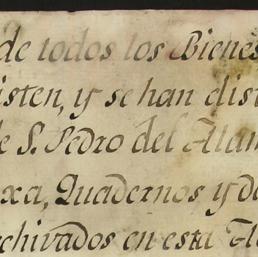 de todos los Bienes
isten, y se han dist
e S. Pedro del Alam
xa, Quadernos y d
chivados en esta